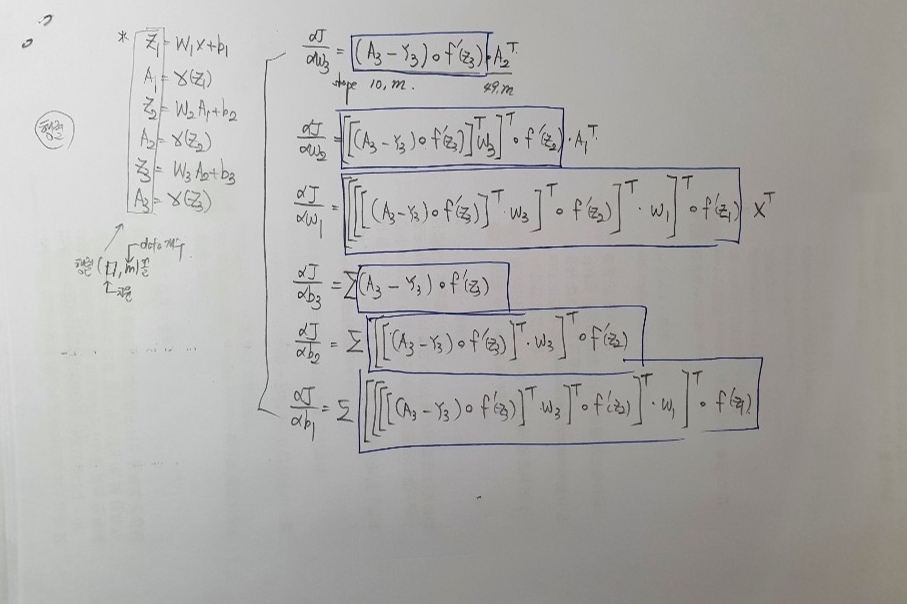 * Z₁ = W₁X+b₁
A₁ = γ(Z₁)
Z₂ = W₂A₁+b₂
A₂ = γ(Z₂)
Z₃ = W₃A₂+b₃
A₃ = γ(Z₃)
행렬
data 개수.
행렬 (□, m)꼴
αJ/αW₃ = (A₃ − Y₃) ∘ f'(Z₃) · A₂ᵀ
shape 10, m. 49, m
αJ/αW₂ = [[(A₃ − Y₃) ∘ f'(Z₃)]ᵀ W₃]ᵀ ∘ f'(Z₂) · A₁ᵀ
αJ/αW₁ = [[[[(A₃−Y₃) ∘ f'(Z₃)]ᵀ · W₃]ᵀ ∘ f'(Z₂)]ᵀ · W₁]ᵀ ∘ f'(Z₁) Xᵀ
αJ/αb₃ = Σ(A₃ − Y₃) ∘ f'(Z₃)
αJ/αb₂ = Σ [[(A₃ − Y₃) ∘ f'(Z₃)]ᵀ · W₃]ᵀ ∘ f'(Z₂)
αJ/αb₁ = Σ [[[[(A₃ − Y₃) ∘ f'(Z₃)]ᵀ · W₃]ᵀ ∘ f'(Z₂)]ᵀ · W₁]ᵀ ∘ f'(Z₁)